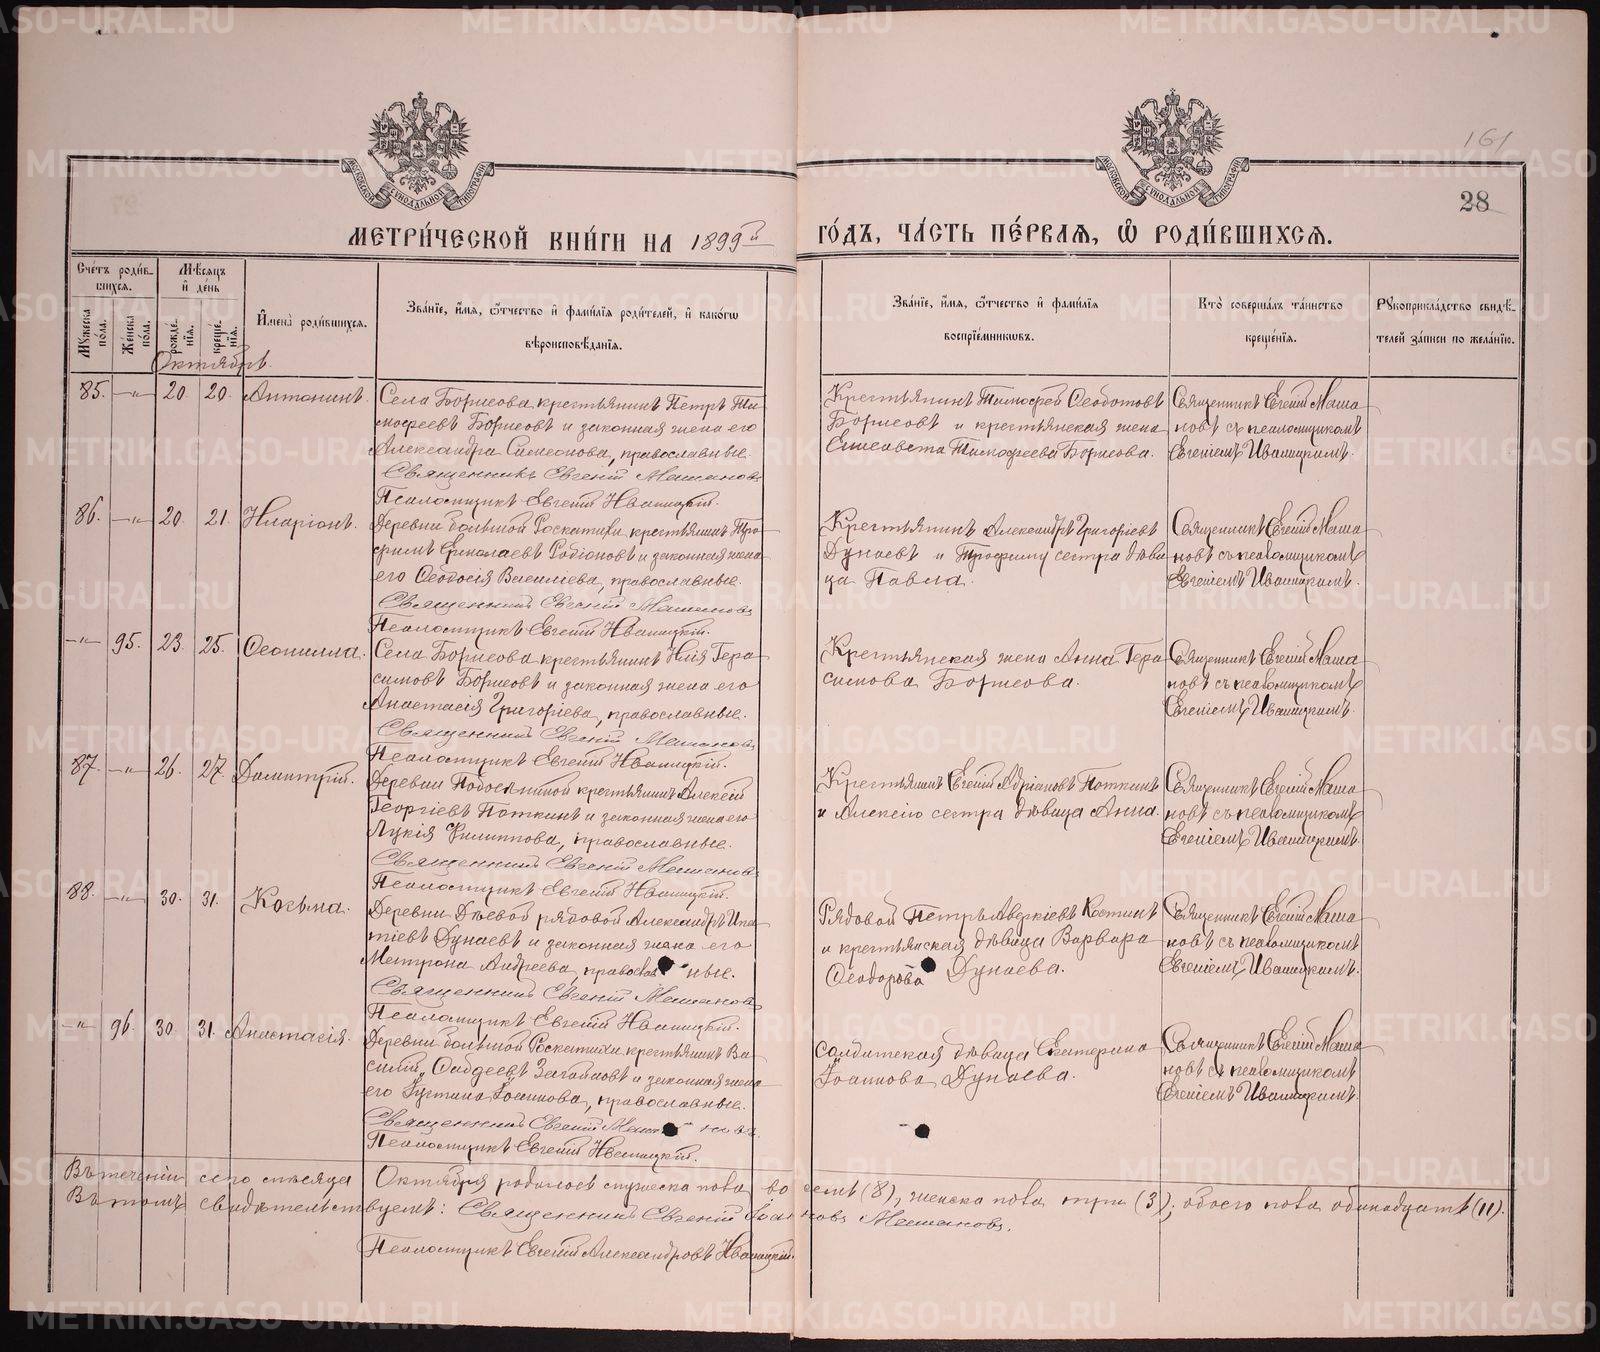 161
28
МЕТРИ́ЧЕСКОЙ КНИ́ГИ НА 1899й ГО́ДЪ, ЧА́СТЬ ПЕ́РВАЯ, Ѽ РОДИ́ВШИХСЯ.
Сче́тъ роди́в-
шихся.
Мѣ́сяцъ
и҆ де́нь
Му́жеска
по́ла.
Же́нска
по́ла.
рожде́-
нія.
креще́-
нія.
И҆мена̀ роди́вшихся.
Зва́нїе, и҆́мя, ѻ҆́тчество и҆ фами́лїя роди́телей, и҆ како́гѡ
вѣроисповѣ́данїя.
Зва́нїе, и҆́мя, ѻ҆́тчество и҆ фами́лїя
воспрїе́мниковъ.
Кто̀ соверша́лъ та́инство
креще́нїя.
Рꙋкоприкла́дство свидѣ́-
телей за́писи по жела́нїю.
Октябрь.
85. —„— 20. 20. Антонинъ.
Села Борисова, крестьянинъ Петръ Ти-
мофеевъ Борисовъ и законная жена его
Александра Симеонова, православные.
Священникъ Евгеній Машановъ
Псаломщикъ Евгеній Иваницкій.
Крестьянинъ Тимофей Ѳеодотовъ
Борисовъ и крестьянская жена
Елисавета Тимофеева Борисова.
Священникъ Евгеній Маша-
новъ съ псаломщикомъ
Евгеніемъ Иваницкимъ.
86. —„— 20. 21. Иларіонъ.
Деревни большой Роскатихи крестьянинъ Тро-
фимъ Ермолаевъ Родіоновъ и законная жена
его Ѳеодосія Василіева, православные.
Священникъ Евгеній Машановъ
Псаломщикъ Евгеній Иваницкій.
Крестьянинъ Александръ Григоріевъ
Дунаевъ и Трофиму сестра дѣви-
ца Павла.
Священникъ Евгеній Маша-
новъ съ псаломщикомъ
Евгеніемъ Иваницкимъ.
—„— 95. 23. 25. Ѳеонилла.
Села Борисова крестьянинъ Илія Гера-
симовъ Борисовъ и законная жена его
Анастасія Григоріева, православные.
Священникъ Евгеній Машановъ
Псаломщикъ Евгеній Иваницкій.
Крестьянская жена Анна Гера-
симова Борисова.
Священникъ Евгеній Маша-
новъ съ псаломщикомъ
Евгеніемъ Иваницкимъ.
87. —„— 26. 27. Димитрій.
Деревни крестьянинъ Алексій
Георгіевъ Поткинъ и законная жена его
Лукія Филиппова, православные.
Священникъ Евгеній Машановъ
Псаломщикъ Евгеній Иваницкій.
Крестьянинъ Евгеній Адріановъ Поткинъ
и Алексію сестра дѣвица Анна.
Священникъ Евгеній Маша-
новъ съ псаломщикомъ
Евгеніемъ Иваницкимъ.
88. —„— 30. 31. Козьма.
Деревни Дѣевой рядовой Александръ Игна-
тіевъ Дунаевъ и законная жена его
Матрона Андреева, православные.
Священникъ Евгеній Машановъ
Псаломщикъ Евгеній Иваницкій.
Рядовой Петръ Авдкіевъ Костинъ
и крестьянская дѣвица Варвара
Ѳеодорова Дунаева.
Священникъ Евгеній Маша-
новъ съ псаломщикомъ
Евгеніемъ Иваницкимъ.
—„— 96. 30. 31. Анастасія.
Деревни большой Роскатихи крестьянинъ Ва-
силій и законная жена
его Іустина Іоаннова, православные.
Священникъ Евгеній Машановъ
Псаломщикъ Евгеній Иваницкій.
солдатская дѣвица Екатерина
Іоаннова Дунаева.
Священникъ Евгеній Маша-
новъ съ псаломщикомъ
Евгеніемъ Иваницкимъ.
Въ теченіи сего мѣсяца Октября родилось мужеска пола восемь (8), женска пола три (3); обоего пола одинадцать (11).
Въ томъ свидѣтельствуемъ: Священникъ Евгеній Іоанновъ Машановъ.
Псаломщикъ Евгеній Александровъ Иваницкій.
METRIKI.GASO-URAL.RU